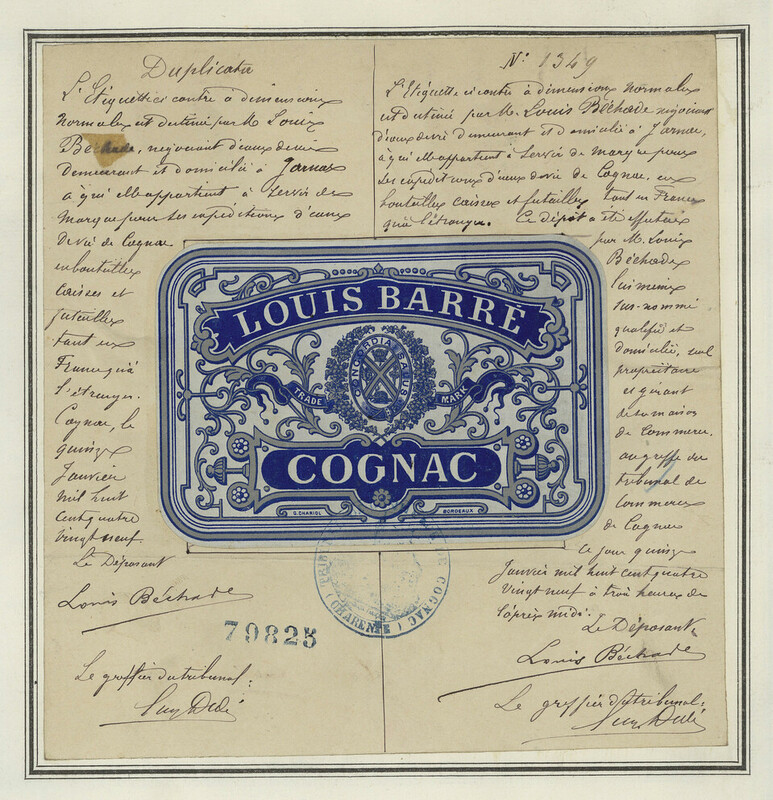 Duplicata
L'Etiquette ci contre à dimensions
Normales est destiné par M. Louis
Béchade, négociant d'eaux de vie
Demeurant et domicilié à Jarnac
à qui elle appartient à servir de
Marque pour ses expéditions d'eaux
De vie de Cognac
en bouteilles
caisses et
futailles
tant en
France qu'à
l'étranger.
Cognac, le
quinze
Janvier
mil huit
cent quatre
Vingt neuf.
Le Déposant
Louis Béchade
79825
Le greffier du tribunal:
N° 1349
L'Etiquette ci contre à dimensions Normales
est destiné par M. Louis Béchade négociant
d'eaux de vie demeurant et domicilié à Jarnac,
à qui elle appartient à servir de Marque pour
ses expéditions d'eaux de vie de Cognac, en
bouteilles caisses et futailles tant en France
qu'à l'étranger. Ce dépôt a été effectué
par M. Louis
Béchade
lui même
sus-nommé
qualifié et
domicilié, seul
propriétaire
et gérant
de sa maison
de Commerce.
au greffe du
tribunal de
Commerce
de Cognac
ce jour quinze
Janvier mil huit cent quatre
Vingt neuf à trois heures de
l'après midi.
Le Déposant
Louis Béchade
Le greffier du tribunal:
LOUIS BARRÈ
CONCORDIA SALUS
TRADE MARK
COGNAC
G. CHARIOL BORDEAUX
DE COGNAC
(CHARENTE)